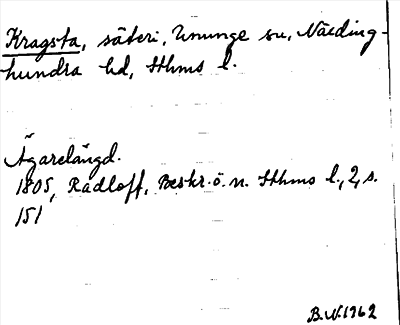 Kragsta, säteri, Ununge sn, Närding-
hundra hd, Sthms l.
Ägarelängd.
1805, Radloff, Beskr. ö. n. Sthms l., 2, s.
151
B.W.1962